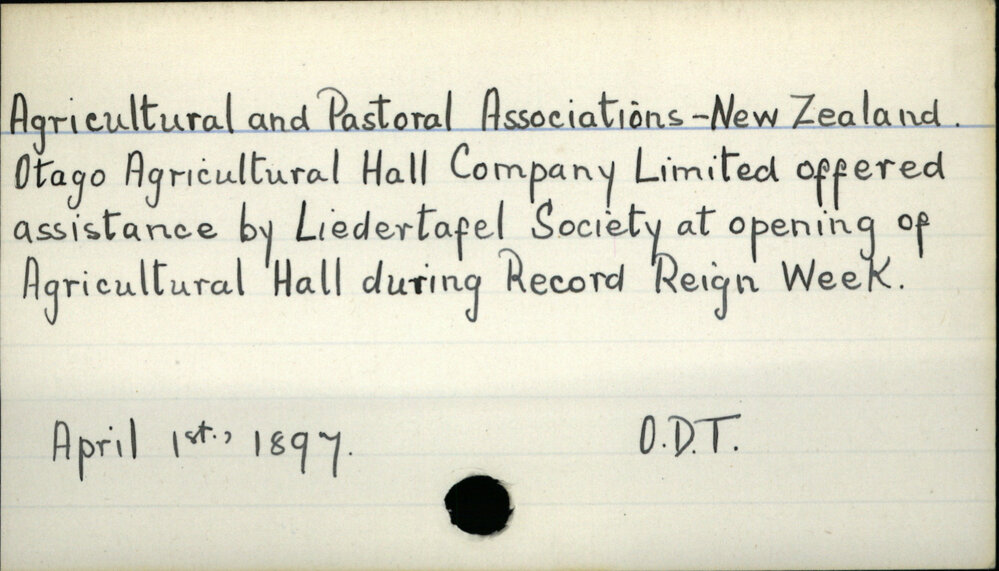 Agricultural and Pastoral Associations - New Zealand.
Otago Agricultural Hall Company Limited offered
assistance by Liedertafel Society at opening of
Agricultural Hall during Record Reign Week.
April 1st., 1897. O.D.T.